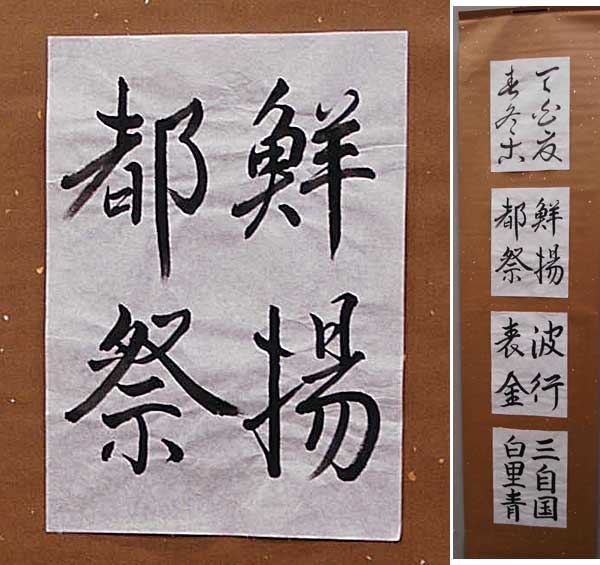 鮮揚
都祭
鮮揚
都祭
波行
表金
三自国
白里青